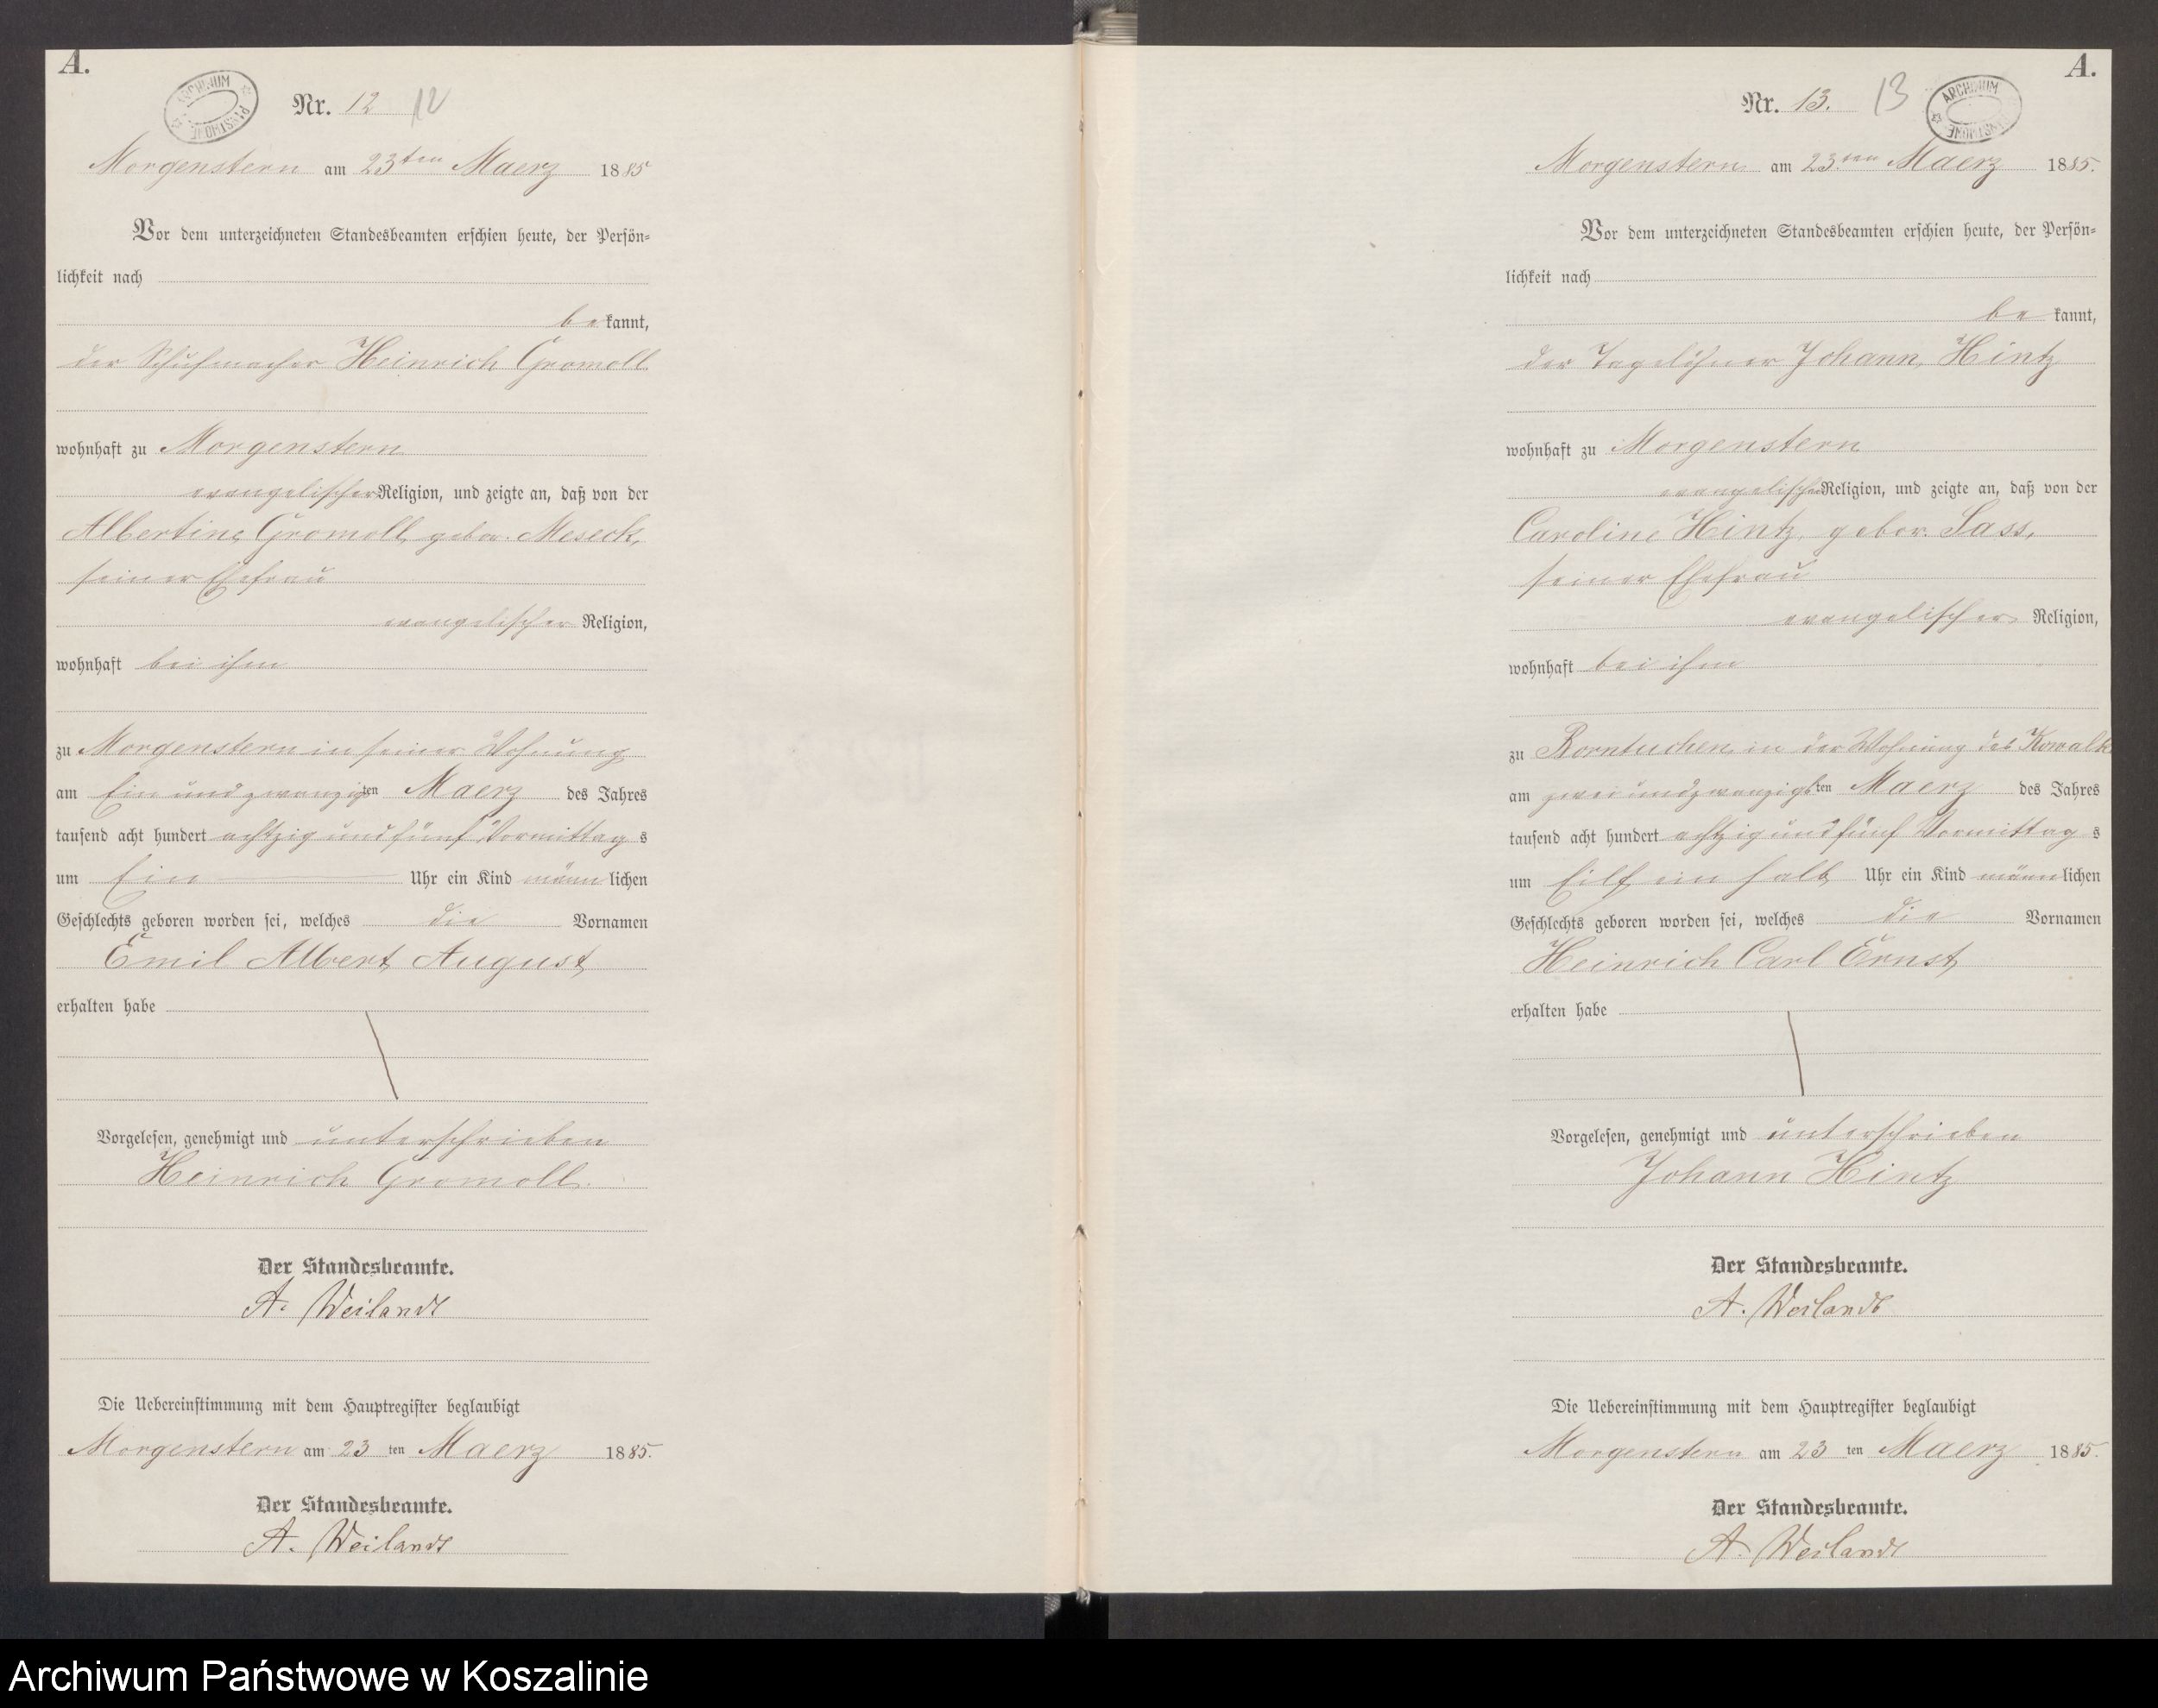 A.
ARCHIWUM PAŃSTWOWE
Nr. 12 12
Morgenstern am 23ten Maerz 1885
Vor dem unterzeichneten Standesbeamten erschien heute, der Persön-
lichkeit nach
bekannt,
der Schuhmacher Heinrich Gromoll
wohnhaft zu Morgenstern
evangelischer Religion, und zeigte an, daß von der
Albertine Gromoll, gebor. Meseck,
seiner Ehefrau
evangelischer Religion,
wohnhaft bei ihm
zu Morgenstern in seiner Wohnung
am Ein und zwanzigten Maerz des Jahres
tausend acht hundert achtzig und fünf Vormittags
um Ein Uhr ein Kind männlichen
Geschlechts geboren worden sei, welches die Vornamen
Emil Albert August
erhalten habe
Vorgelesen, genehmigt und unterschrieben
Heinrich Gromoll.
Der Standesbeamte.
A. Weilandt
Die Uebereinstimmung mit dem Hauptregister beglaubigt
Morgenstern am 23 ten Maerz 1885.
Der Standesbeamte.
A. Weilandt
A.
Nr. 13. 13
ARCHIWUM PAŃSTWOWE
Morgenstern am 23.ten Maerz 1885.
Vor dem unterzeichneten Standesbeamten erschien heute, der Persön-
lichkeit nach
bekannt,
der Tagelöhner Johann Hintz
wohnhaft zu Morgenstern
evangelischer Religion, und zeigte an, daß von der
Caroline Hintz, gebor. Sass,
seiner Ehefrau
evangelischer Religion,
wohnhaft bei ihm
zu Borntuchen in der Wohnung des Kowalk
am zwei und zwanzigsten Maerz des Jahres
tausend acht hundert achtzig und fünf Vormittags
um Eilf ein halb Uhr ein Kind männlichen
Geschlechts geboren worden sei, welches die Vornamen
Heinrich Carl Ernst
erhalten habe
Vorgelesen, genehmigt und unterschrieben
Johann Hintz
Der Standesbeamte.
A. Weilandt
Die Uebereinstimmung mit dem Hauptregister beglaubigt
Morgenstern am 23 ten Maerz 1885.
Der Standesbeamte.
A. Weilandt
Archiwum Państwowe w Koszalinie